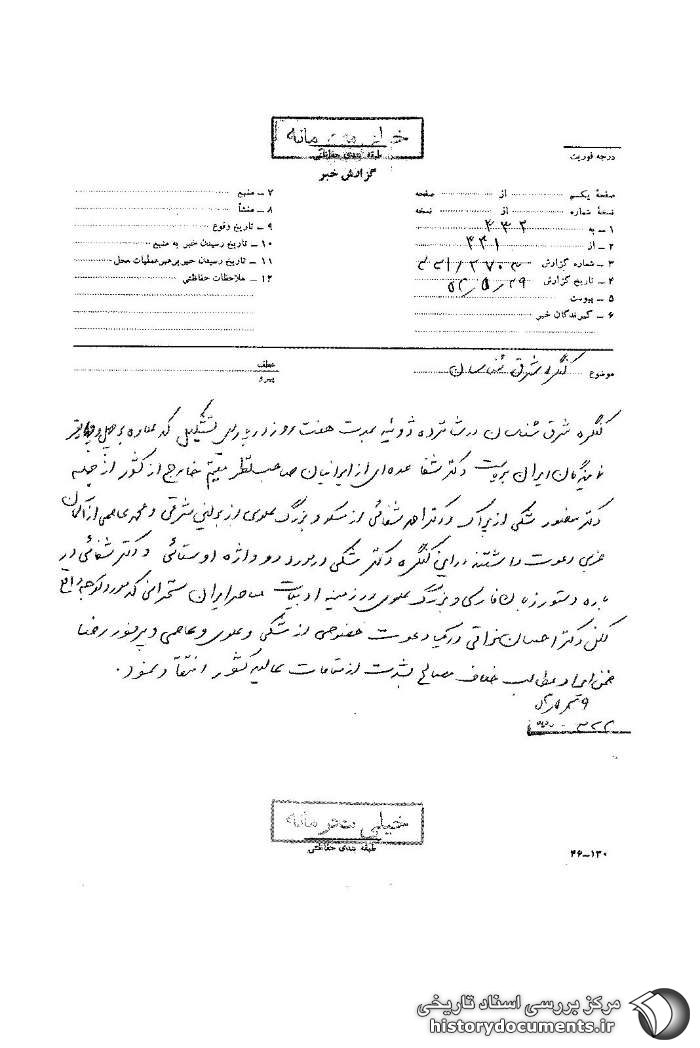 خیلی محرمانه
طبقه بندی حفاظتی
گزارش خبر
درجه فوریت
صفحهٔ یکم از صفحه
نسخهٔ شماره از نسخه
۱ – به ۳۳۲
۲ – از ۳۴۱
۳ – شماره گزارش
۴ – تاریخ گزارش
۵ – پیوست
۶ – گیرندگان خبر
۷ – منبع
۸ – منشأ
۹ – تاریخ وقوع
۱۰ – تاریخ رسیدن خبر به منبع
۱۱ – تاریخ رسیدن خبر برهبر عملیات محل
۱۲ – ملاحظات حفاظتی
موضوع کنگره شرق شناسان
عطف
پیرو
کنگره شرق شناسان در شانزده ژوئیه بمدت هفت روز در پاریس تشکیل که علاوه بر
نمایندگان ایران بریاست دکتر شفا عده‌ای از ایرانیان صاحب‌نظر مقیم خارج از کشور از جمله
دکتر منصور شکی از پراگ و دکتر احمد شفائی از مسکو و بزرگ علوی از برلین شرقی و محمد عاصمی از آلمان
غربی دعوت داشتند در این کنگره دکتر شکی در مورد دو واژه اوستائی و دکتر شفائی در
باره دستور زبان فارسی و بزرگ علوی در زمینه ادبیات معاصر ایران سخنرانی که مورد توجه واقع
لکن دکتر احسان نراقی در یک دعوت خصوصی از شکی و علوی و عاصمی و پرفسور رضا
ضمن ایراد مطالب خلاف مصالح بشدت از مقامات عالیه کشور انتقاد نمود.
خیلی محرمانه
طبقه بندی حفاظتی
۴۶–۱۳۰
مرکز بررسی اسناد تاریخی
historydocuments.ir